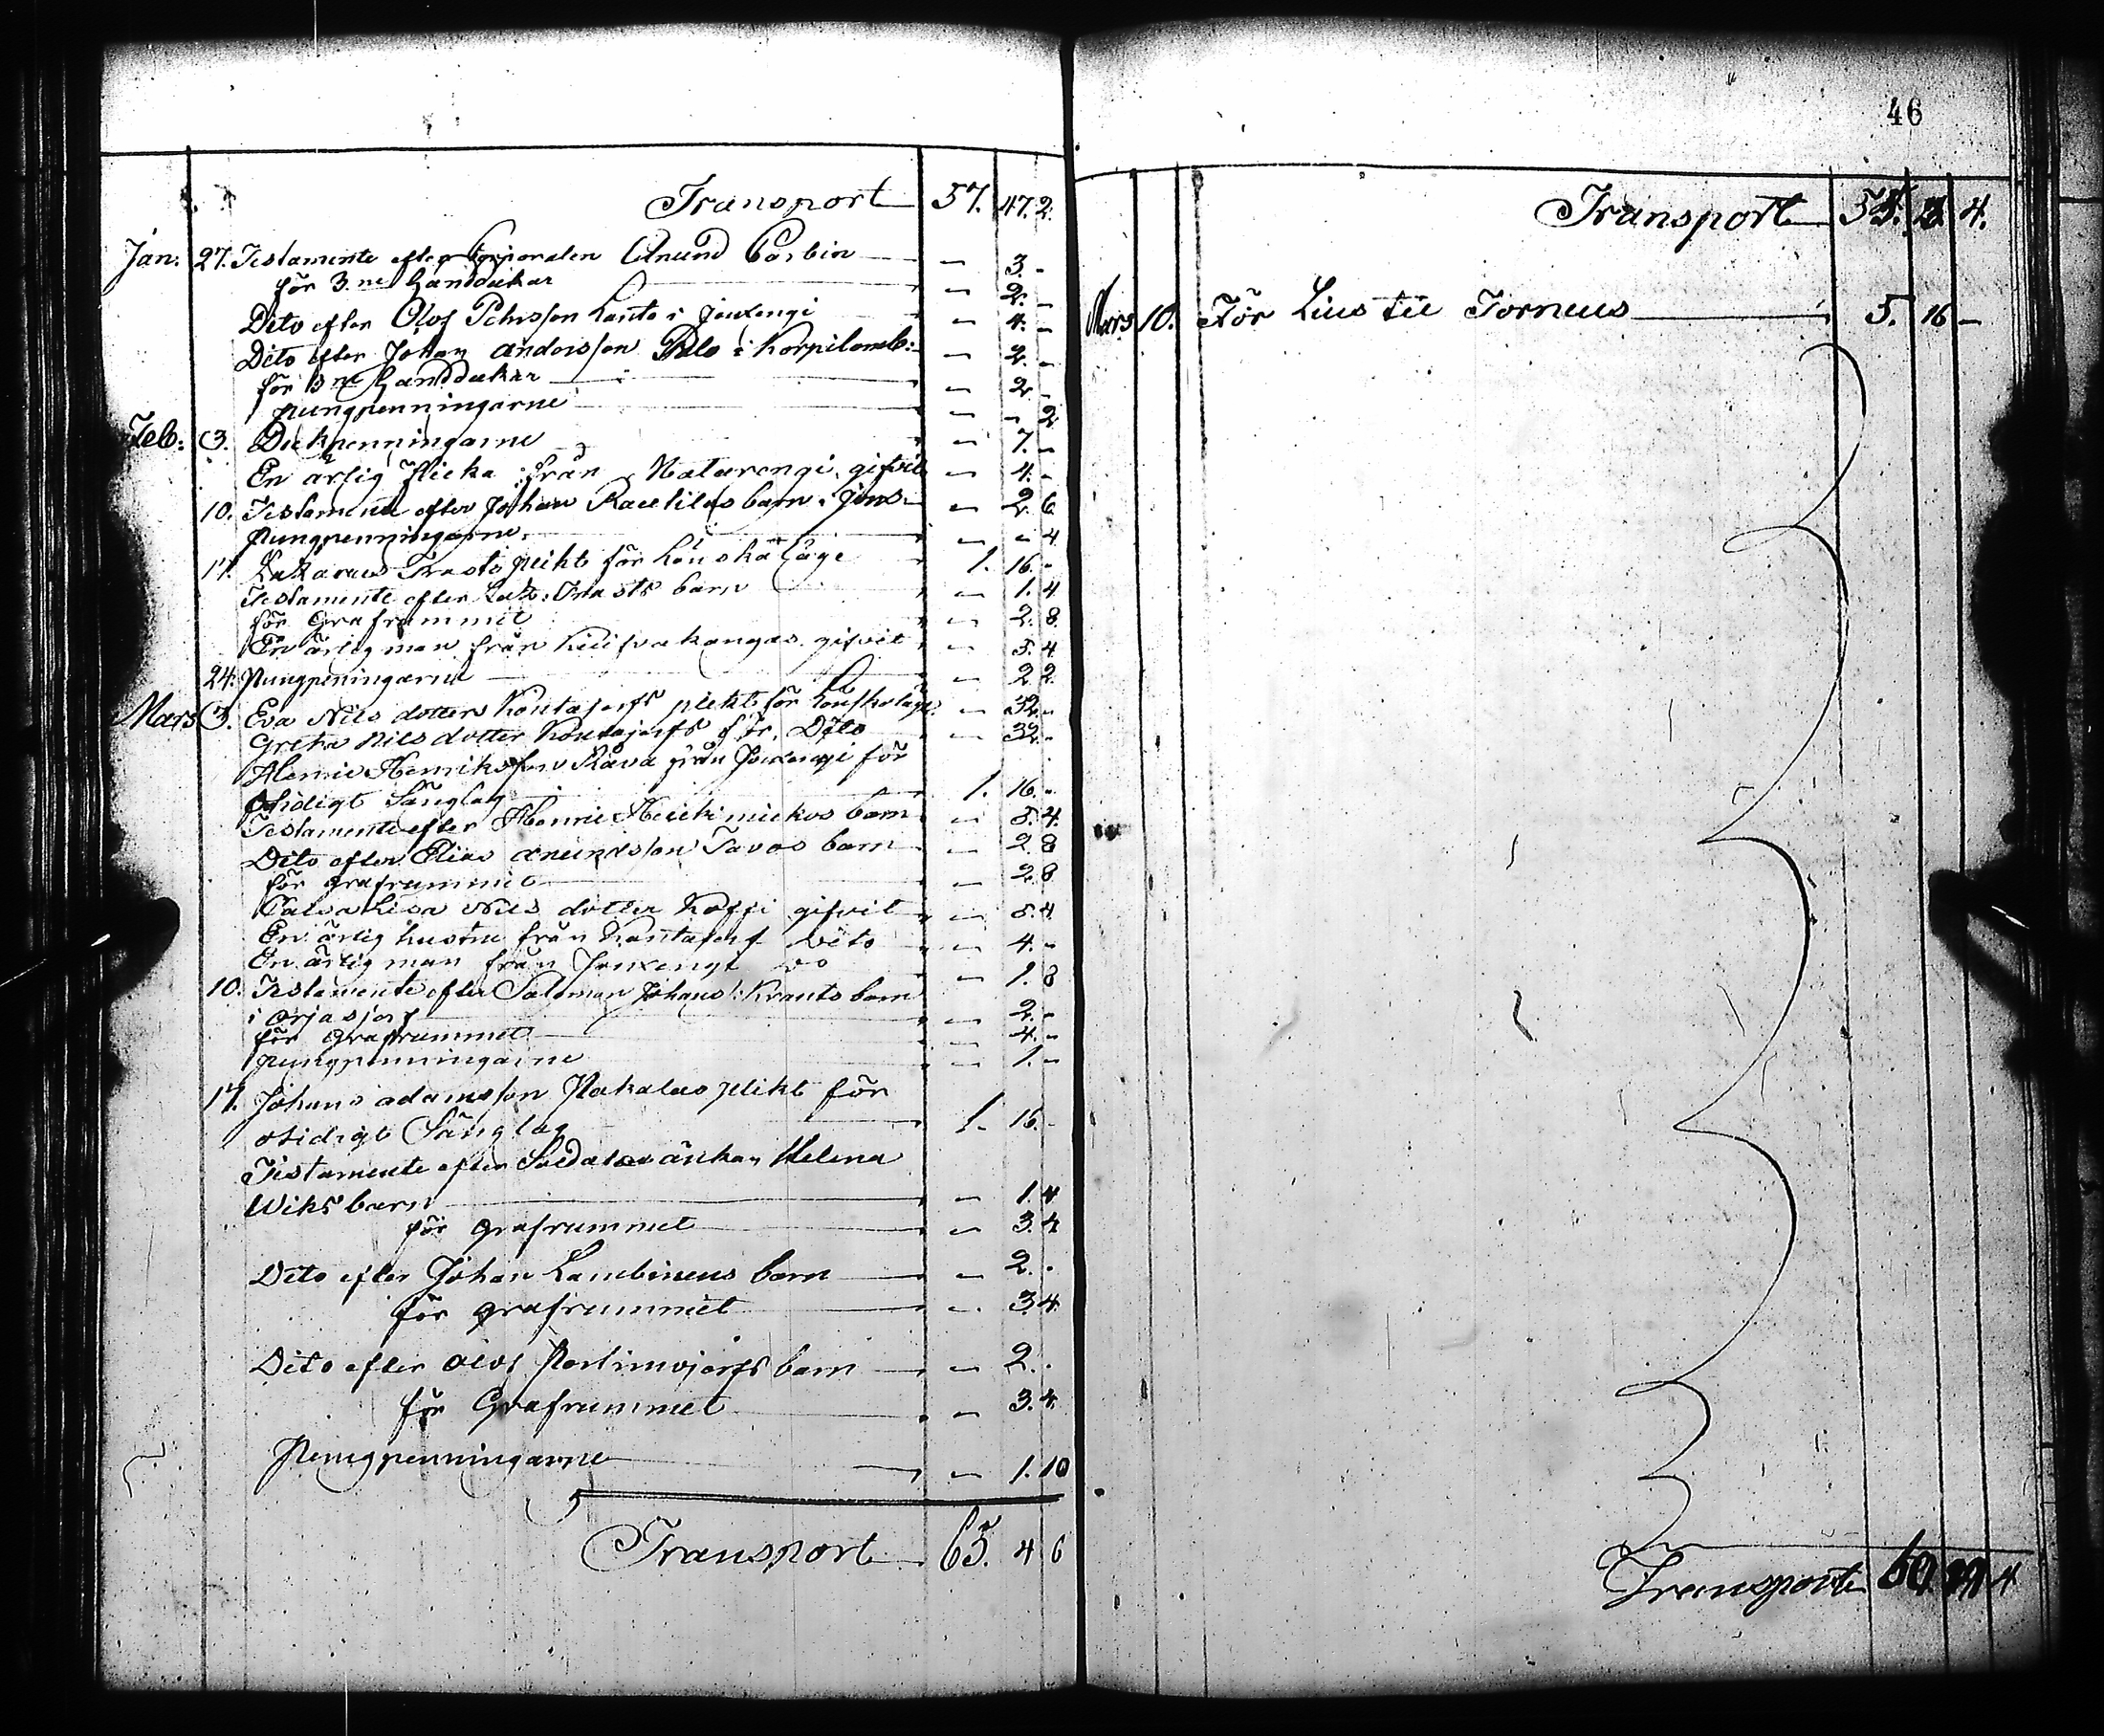 Transport 57. 47. 2.
Jan. 27. Testamente efter Corporalen Anund Corbin — 3. -
för 3.ne handdukar — 2. -
Dito efter Olof Pehrsson Lanto i Jouxengi — 4. -
Dito efter Johan andersson Palo i Korpilomb: — 2. -
för 3ne handdukar — 2 -
pungpenningarne — - 2
Feb: 3. Dukpenningarne — 7. -
En ärlig flicka från Matarengi gifvit — 4. -
10. Testamente efter Johan Rautilas barn i — 2. 6
Pungpenningarne. — - 4
17. Zakarias Trasts plikt för Lönskaläge 1. 16. -
Testamente efter Zak: Trasts barn — 1. 4
för Grafrummet — 2. 8.
En ärlig man från kangas gifvit — 5. 4
24. Pungpeningarne — 2 2.
Mars 3. Eva Nils dotters Koutajerfs plikt för Lönskaläge — 32. -
Greta Nils dotter Koutajerfs för Dito — 32. -
Henric Henriksson Råva från Jouxengi för
otidigt Sänglag 1. 16. -
Testamente efter Henric barn — 5. 4.
Dito efter Elias anundsson Tavas barn — 2. 8
för grafrummet — 2 8.
Lisa Nils dotter Koffi gifvit — 5. 4.
En ärlig hustru från Kantajerf Dito — 4. -
En ärlig man från Jouxengi Do — 1. 8
10. Testamente efter Salomon Johans: Krants barn
i Orjasjerf — 2. -
för grafrummet — 4. -
pungpenningarne — 1. -
17. Johans adamsson Pakalas plikt för
otidigt Sänglag 1. 16. -
Testamente efter Soldatens änkan Helena
Wiks barn — 1. 4
för grafrummet — 3. 4
Dito efter Johan Lambinens barn — 2. -
för grafrummet — 3. 4.
Dito efter Olof Portimojerfs barn — 2. -
för Grafrummet — 3. 4.
Pungpenningarne — 1. 10
Transport 65. 4 6
46
Transport 4.
Mars 10. För Lius til Torneus 5. 16 —
Transport 60. 4